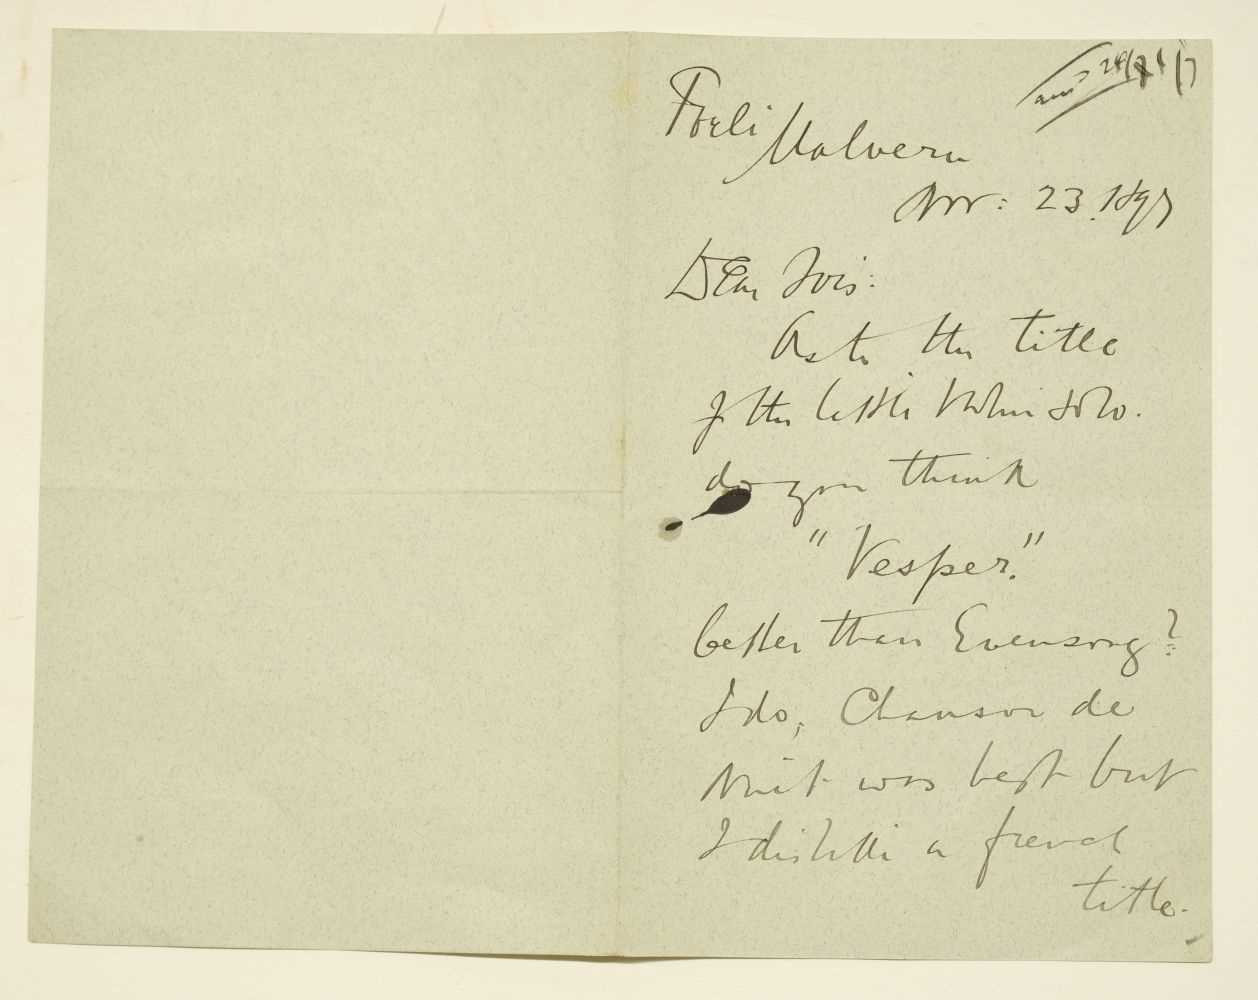 Forli
Malvern
Nov: 23. 1897
Dear Sirs:
As to the title
of the little Violin Solo.
do you think
"Vesper."
better than Evensong?
I do, Chanson de
Nuit was best but
I dislike a french
title.